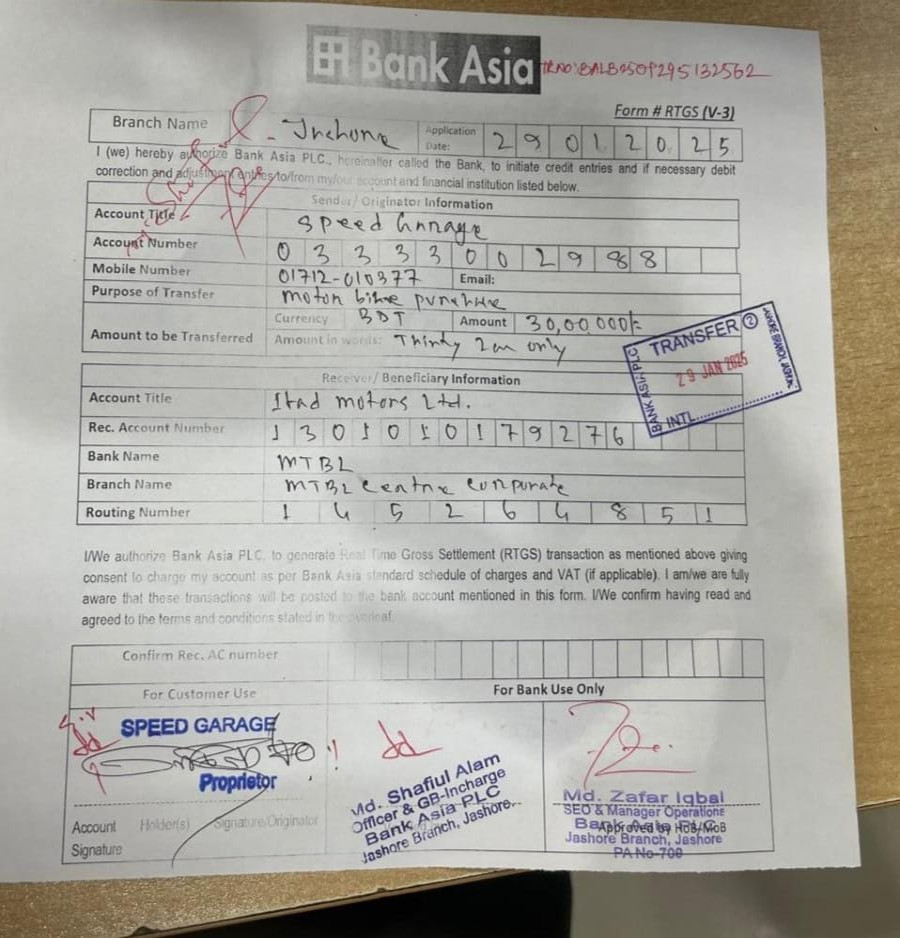 Bank Asia
TRNO:BALB2501295132562
Form # RTGS (V-3)
Branch Name Jashore Application Date: 2 9 0 1 2 0 2 5
I (we) hereby authorize Bank Asia PLC., hereinafter called the Bank, to initiate credit entries and if necessary debit
correction and adjustment entries to/from my/our account and financial institution listed below.
Sender/ Originator Information
Account Title Speed Garage
Account Number 0 3 3 3 3 0 0 2 9 8 8
Mobile Number 01712-010377 Email:
Purpose of Transfer Motor bike purchase
Amount to be Transferred Currency BDT Amount 30,00000/=
Amount in words: Thirty Lac only
TRANSFER 2
BANK ASIA PLC
29 JAN 2025
INTL
Receiver/ Beneficiary Information
Account Title Ifad Motors Ltd.
Rec. Account Number 1 3 0 1 0 1 0 1 7 9 2 7 6
Bank Name MTBL
Branch Name MTBL Centre Corporate
Routing Number 1 4 5 2 6 4 8 5 1
I/We authorize Bank Asia PLC. to generate Real Time Gross Settlement (RTGS) transaction as mentioned above giving
consent to charge my account as per Bank Asia standard schedule of charges and VAT (if applicable). I am/we are fully
aware that these transactions will be posted to the bank account mentioned in this form. I/We confirm having read and
agreed to the terms and conditions stated in the overleaf.
Confirm Rec. AC number
For Customer Use For Bank Use Only
SPEED GARAGE
Proprietor
Account Holder(s) Signature/Originator
Signature
Md. Shafiul Alam
Officer & GB-Incharge
Bank Asia PLC
Jashore Branch, Jashore.
Md. Zafar Iqbal
SEO & Manager Operations
Approved by HoB/MoB
Jashore Branch, Jashore
PA No-700